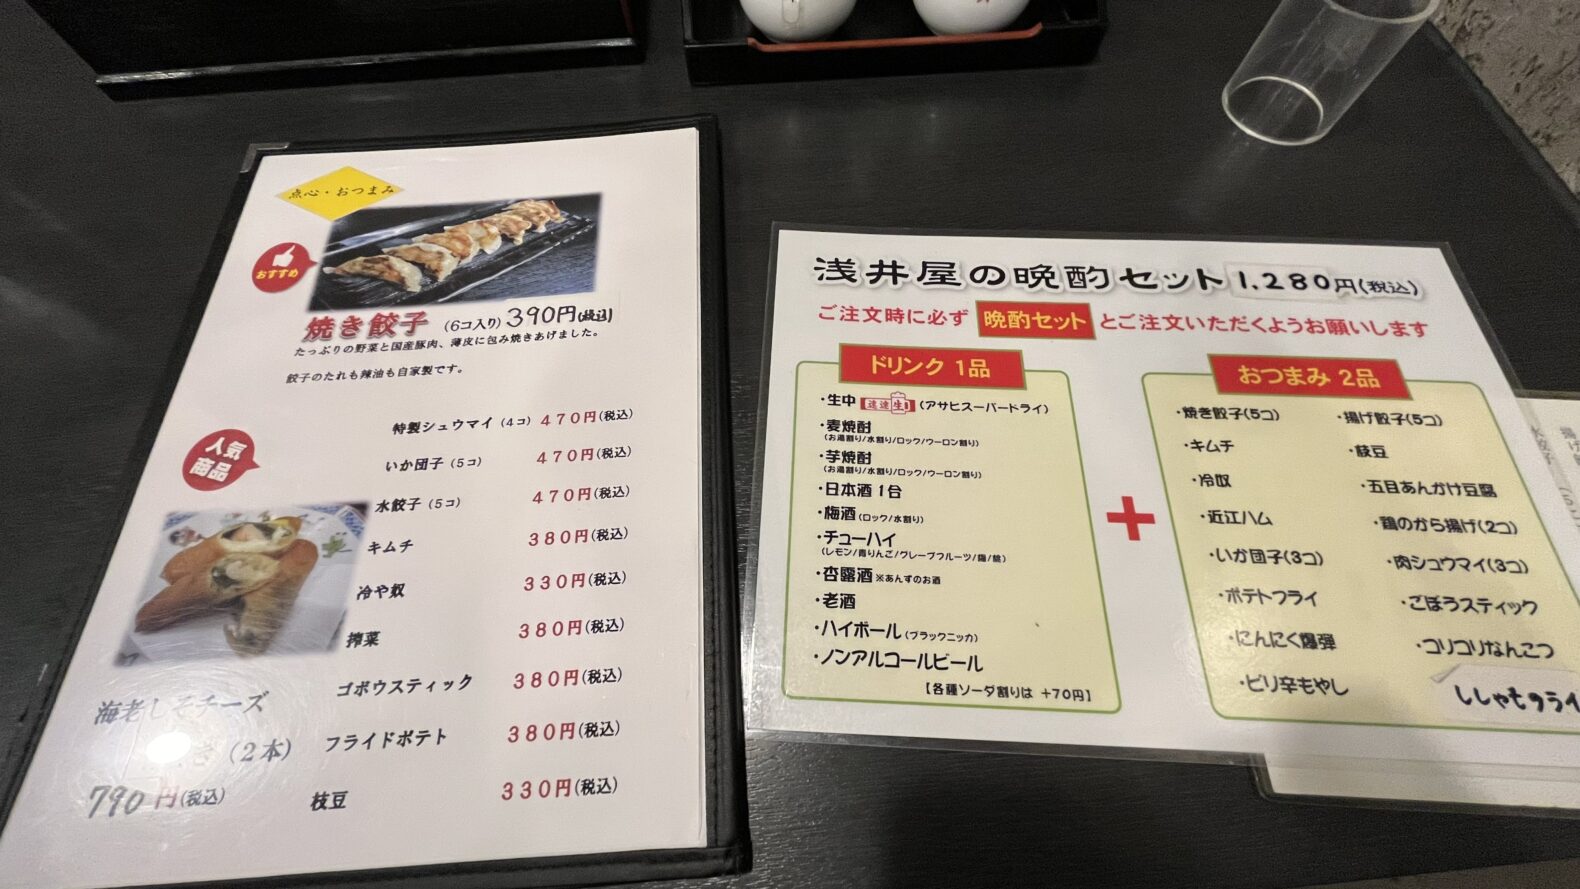 点心・おつまみ
おすすめ
焼き餃子 (6コ入り) 390円(税込)
たっぷりの野菜と国産豚肉、薄皮に包み焼きあげました。
餃子のたれも辣油も自家製です。
人気
商品
特製シュウマイ (4コ) 470円(税込)
いか団子 (5コ) 470円(税込)
水餃子 (5コ) 470円(税込)
キムチ 380円(税込)
冷や奴 330円(税込)
搾菜 380円(税込)
ゴボウスティック 380円(税込)
フライドポテト 380円(税込)
枝豆 330円(税込)
海老しそチーズ
(2本)
790円(税込)
浅井屋の晩酌セット 1.280円(税込)
ご注文時に必ず 晩酌セット とご注文いただくようお願いします
ドリンク 1品
・生中 速達生 (アサヒスーパードライ)
・麦焼酎
(お湯割り/水割り/ロック/ウーロン割り)
・芋焼酎
(お湯割り/水割り/ロック/ウーロン割り)
・日本酒 1合
・梅酒(ロック/水割り)
・チューハイ
(レモン/青りんご/グレープフルーツ/梅/桃)
・杏露酒 ※あんずのお酒
・老酒
・ハイボール(ブラックニッカ)
・ノンアルコールビール
【各種ソーダ割りは +70円】
+
おつまみ 2品
・焼き餃子(5コ) ・揚げ餃子(5コ)
・キムチ ・枝豆
・冷奴 ・五目あんかけ豆腐
・近江ハム ・鶏のから揚げ(2コ)
・いか団子(3コ) ・肉シュウマイ(3コ)
・ポテトフライ ・ごぼうスティック
・にんにく爆弾 ・コリコリなんこつ
・ピリ辛もやし ししゃもフライ
水餃子